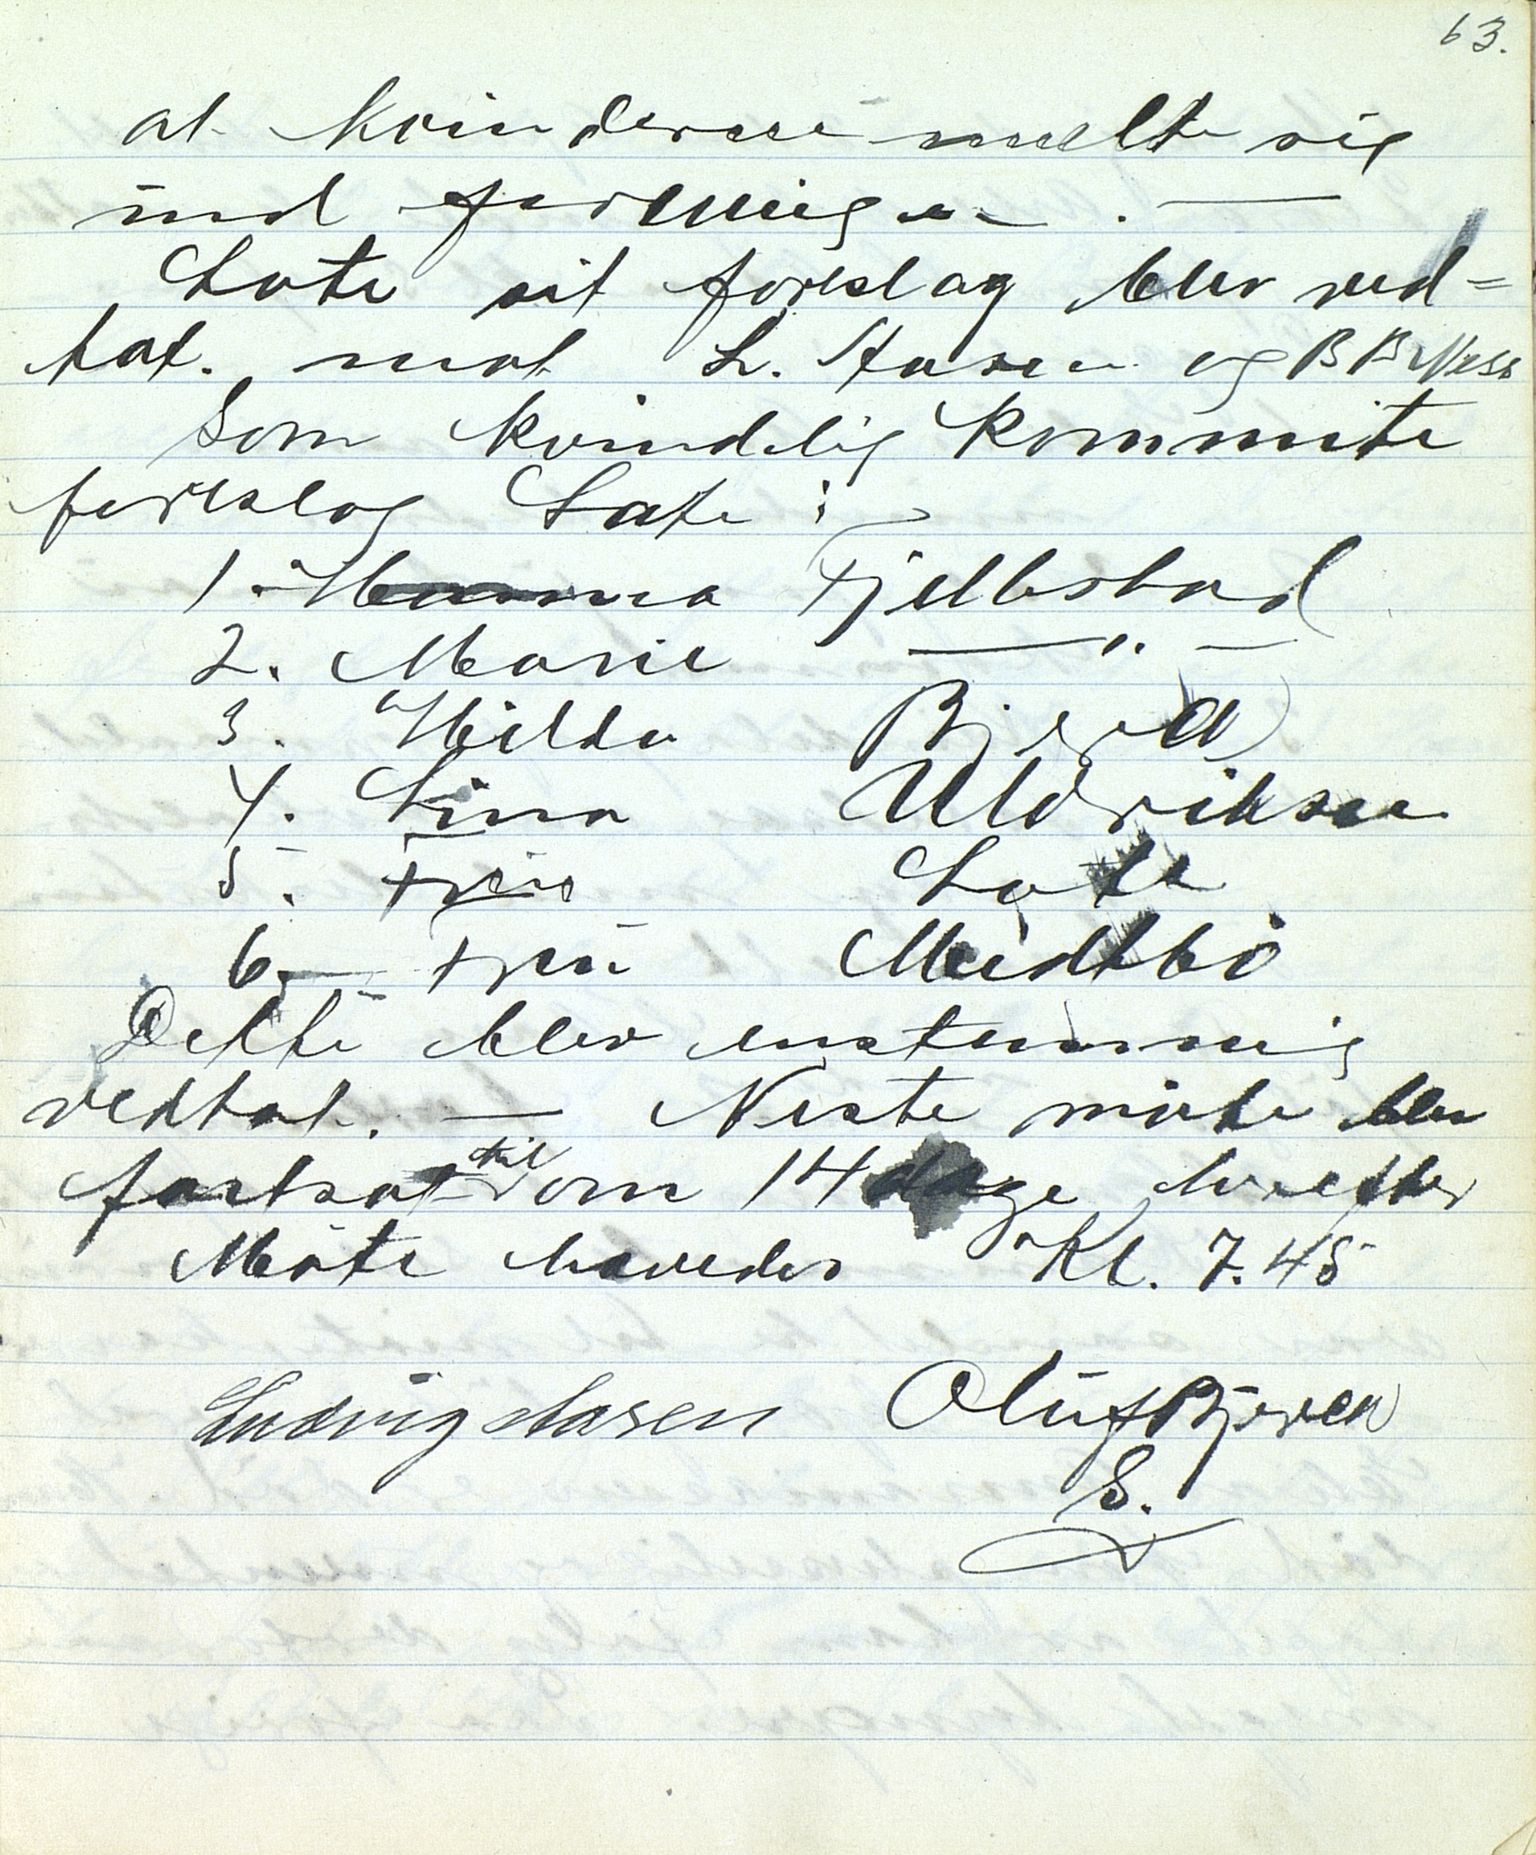 63.
at kvinderne mælte sig
ind foreningen. —
Lote sit forslag blev ved=
tat. mot L. Aasen og B B Ness
Som kvindelig Kommite
foreslog Lote:
1. Hanna Fjellestad
2. Marie —"—
3. Hilda Bjerva
4. Lina Uldriksen
5. Frü Lote
6. — Frü Meidtbö
Dette blev enstemmig
vedtat. — Neste möte blev
fastsat til om 14 dage herefter
Möte hævedes Kl. 7.45
Ludvig Aasen Oluf Bjerven
S.